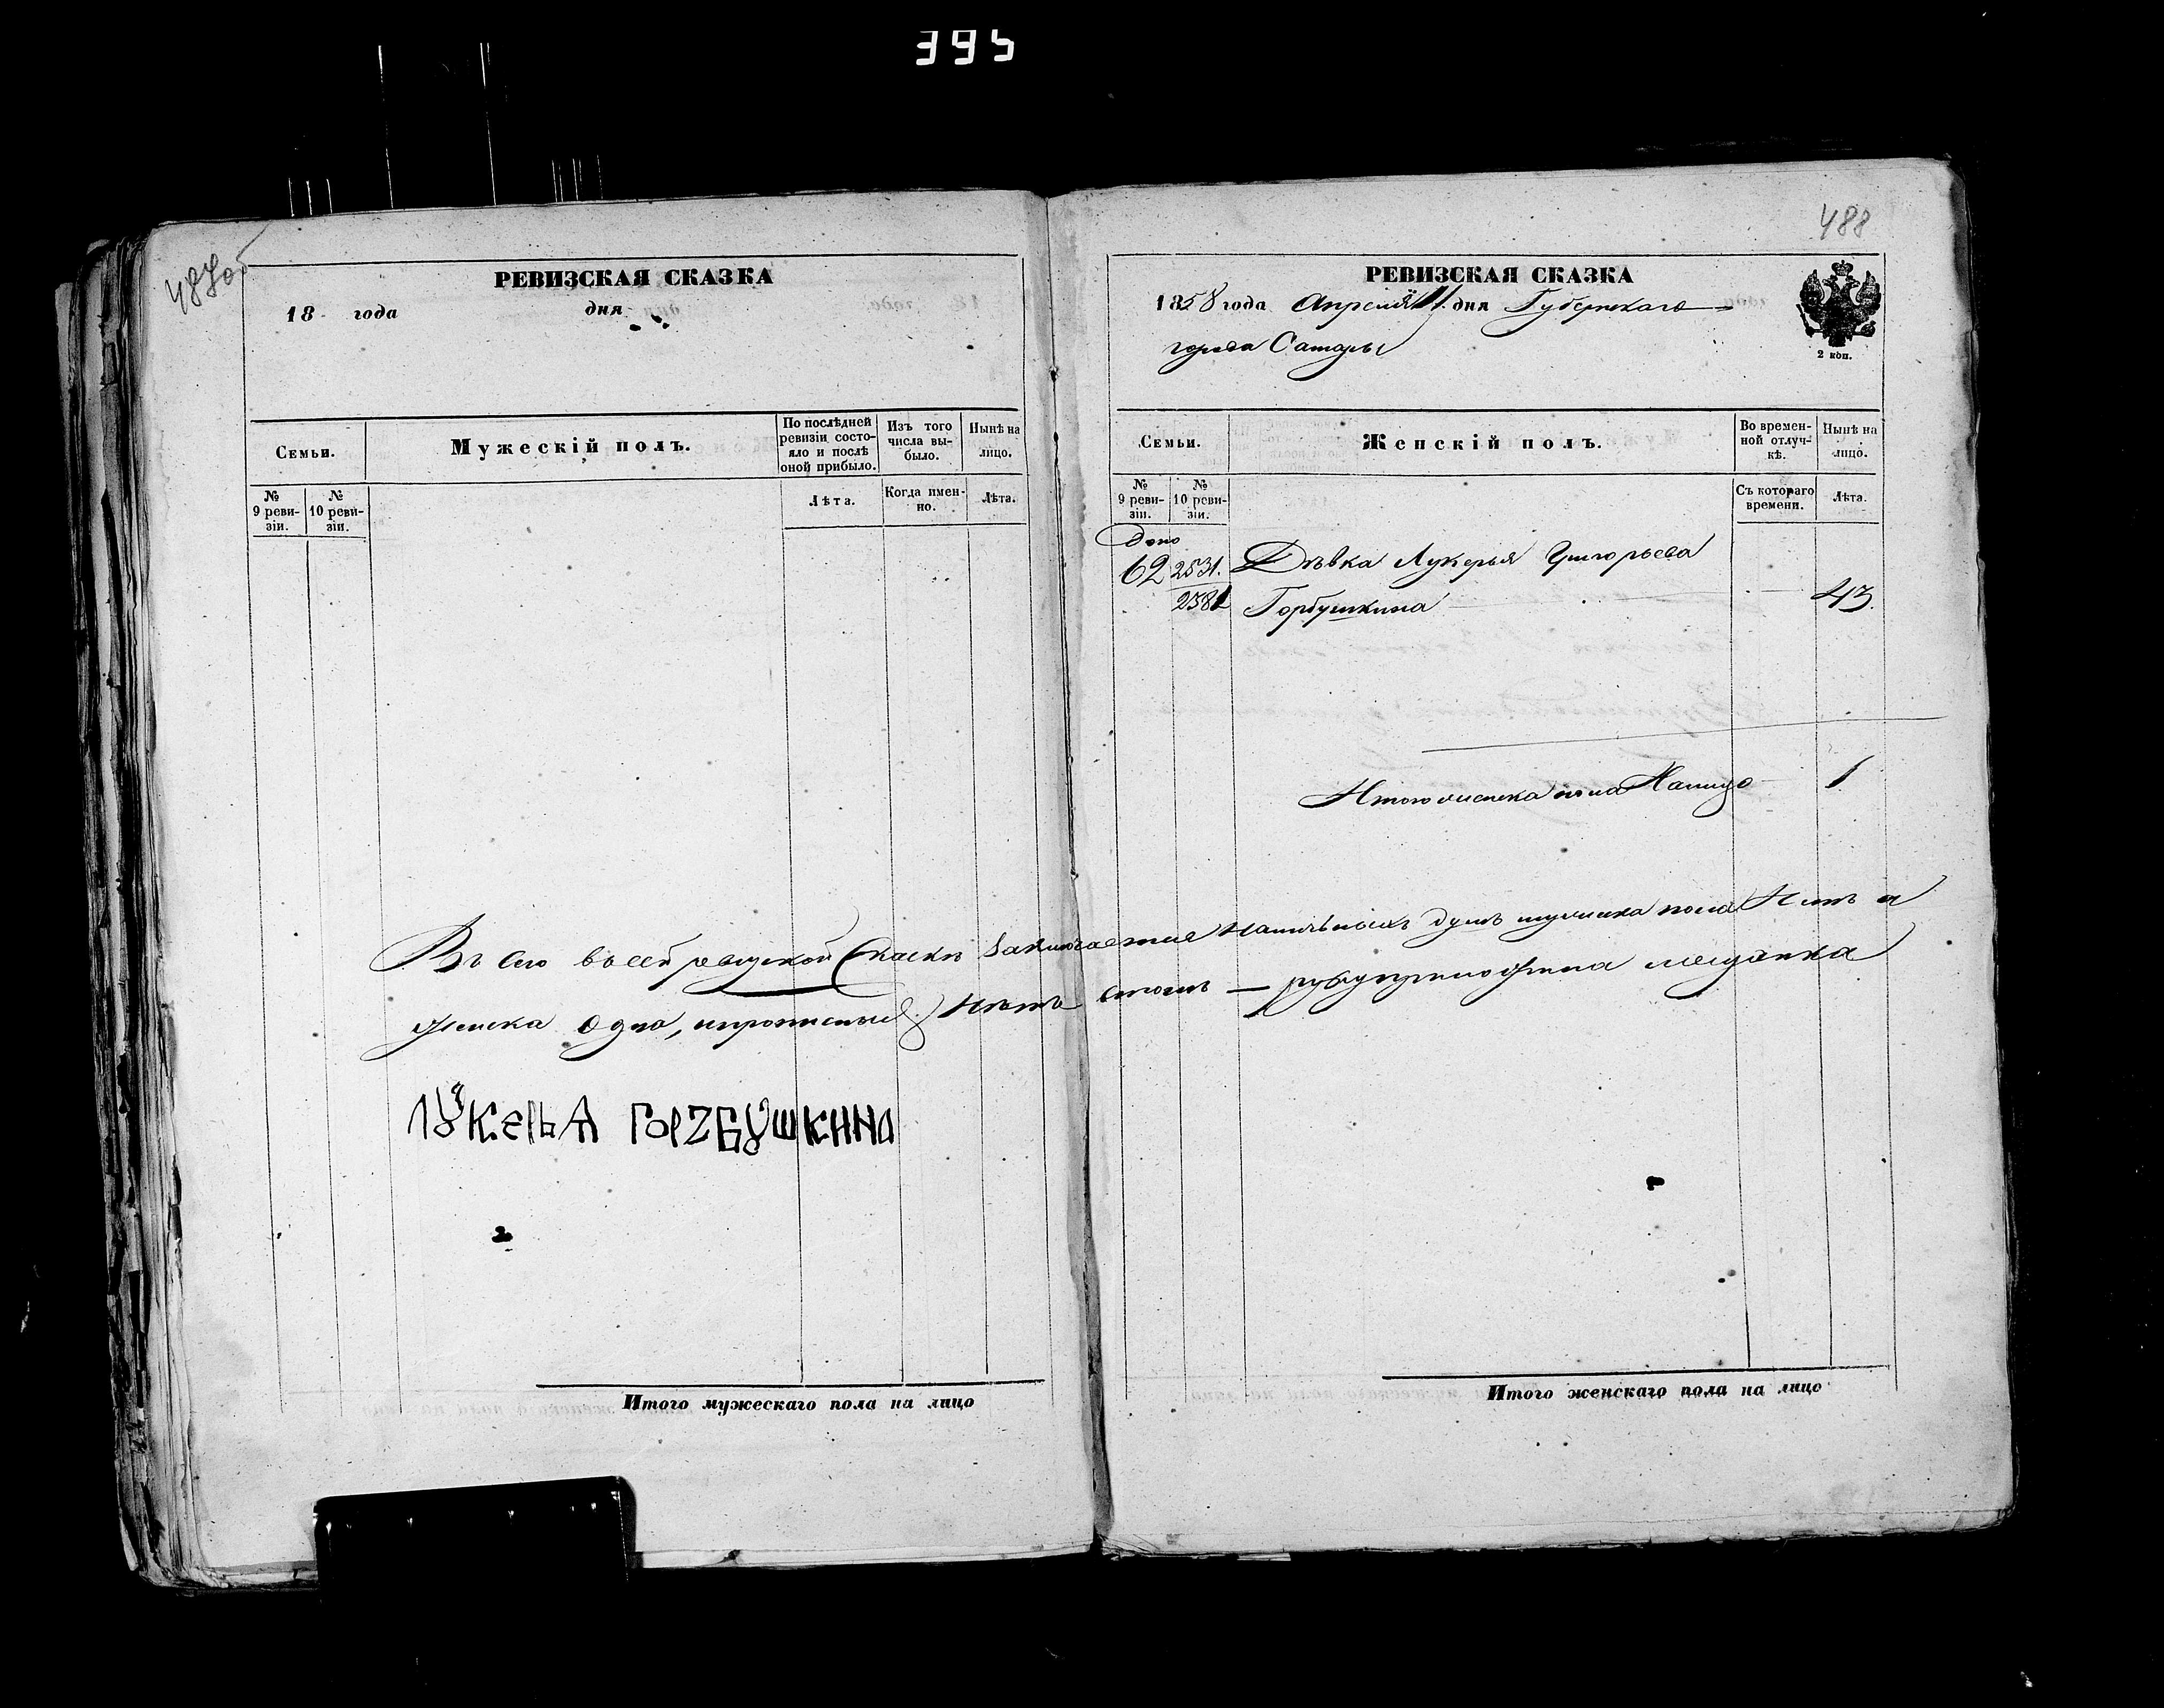 395
487об
РЕВИЗСКАЯ СКАЗКА
18 года дня
Семьи.
Мужескій полъ.
По послѣдней ревизіи состояло и послѣ оной прибыло.
Изъ того числа выбыло.
Нынѣ на лицо.
№ 9 ревизіи.
№ 10 ревизіи.
Лѣта.
Когда именно.
Лѣта.
488
РЕВИЗСКАЯ СКАЗКА
1858 года Апреля 11 дня Губернскаго
города Самары
2 коп.
Семьи.
Женскій полъ.
Во временной отлучкѣ.
Нынѣ на лицо.
№ 9 ревизіи.
№ 10 ревизіи.
Съ котораго времени.
Лѣта.
62 2531. Дѣвка Лукерья Григорьева
2381 Горбушкина 43.
Итого женска пола Налицо 1
Въ сей ревизской Сказки Заключается наличныхъ душъ мужска пола Нетъ а
женска Одна, Нѣтъ въ томъ мещанка
ЛУКЕРЬЯ ГОРZБУШКИНА
Итого мужескаго пола на лицо
Итого женскаго пола на лицо